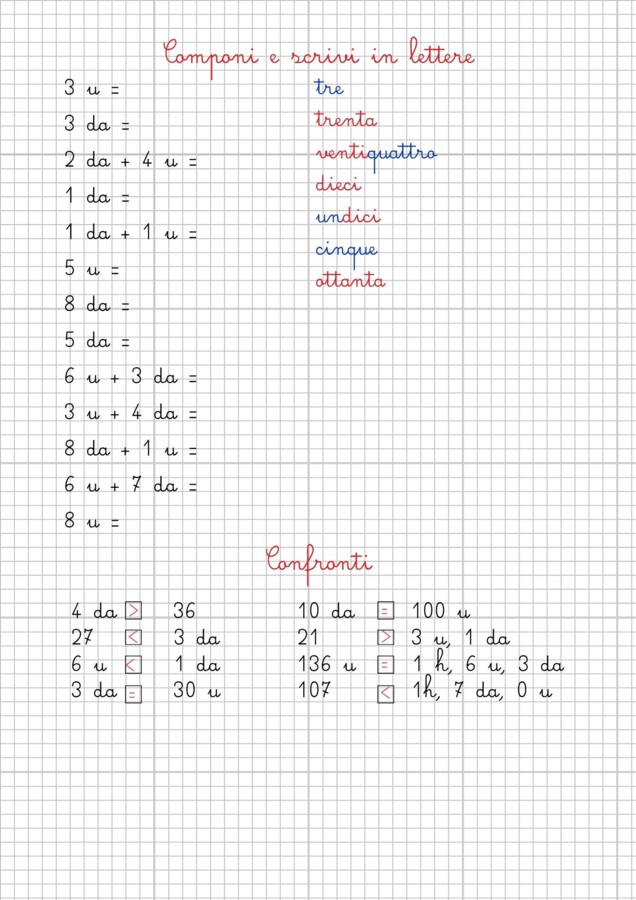 Componi e scrivi in lettere
3 u = tre
3 da = trenta
2 da + 4 u = ventiquattro
1 da = dieci
1 da + 1 u = undici
5 u = cinque
8 da = ottanta
5 da =
6 u + 3 da =
3 u + 4 da =
8 da + 1 u =
6 u + 7 da =
8 u =
Confronti
4 da > 36 10 da = 100 u
27 < 3 da 21 > 3 u, 1 da
6 u < 1 da 136 u = 1 h, 6 u, 3 da
3 da = 30 u 107 < 1h, 7 da, 0 u